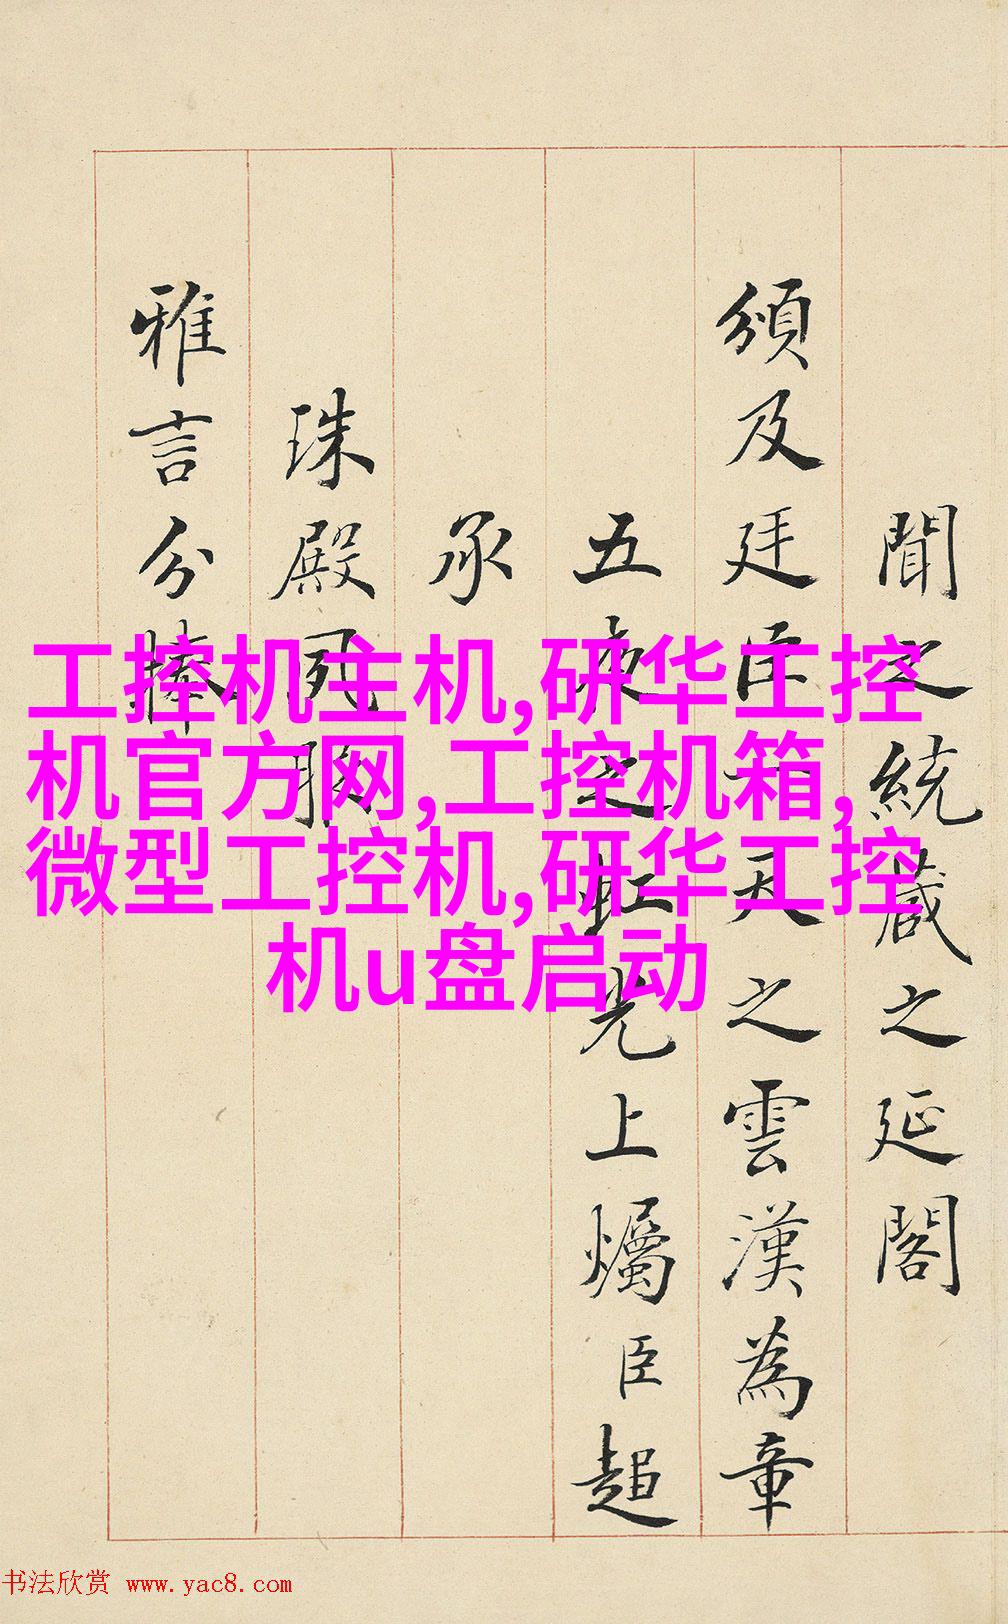 聞之統蔵之延閣
頒及廷臣一天之雲漢為章
五夜之虹光上爥臣超
承
珠殿夙
雅言分捧
工控机主机,研华工控
机官方网,工控机箱,
微型工控机,研华工控
机u盘启动
书法欣赏 www.yac8.com